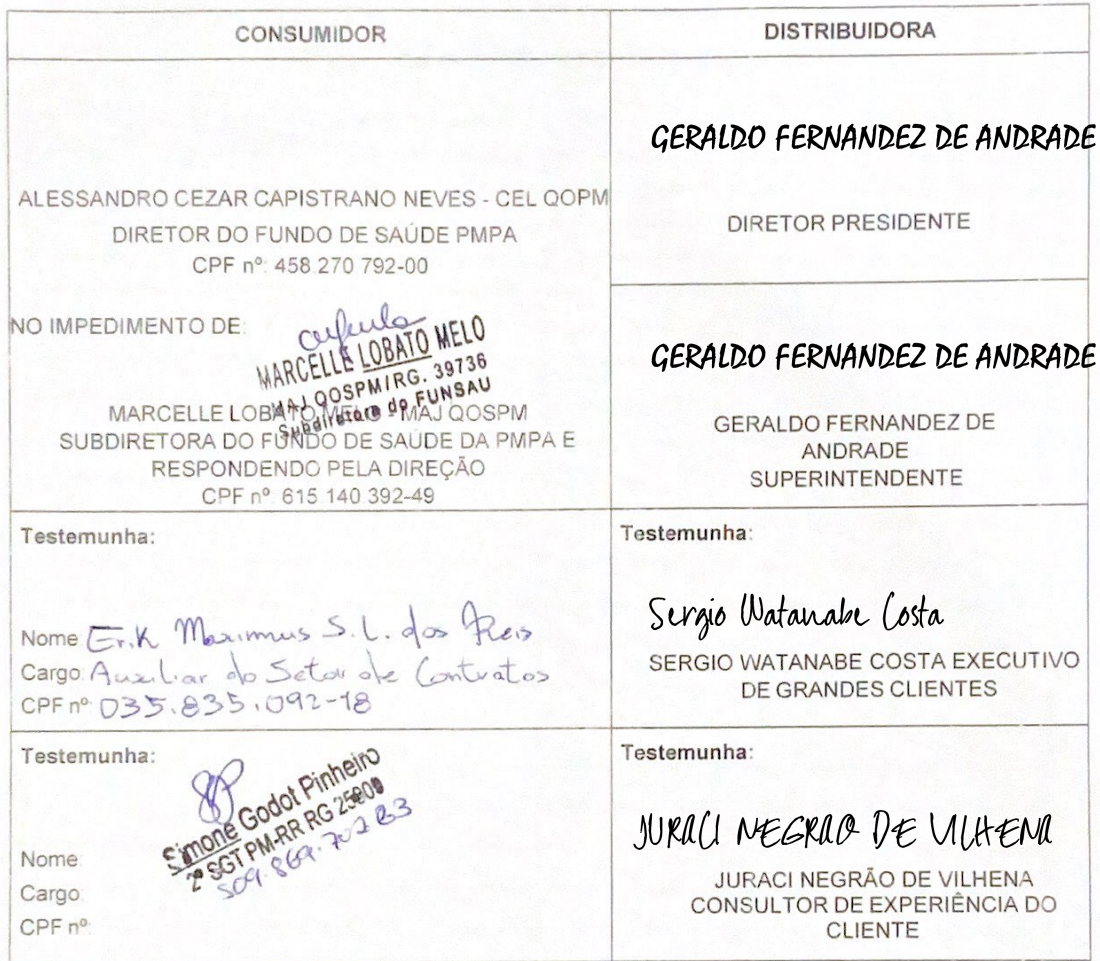 CONSUMIDOR
ALESSANDRO CEZAR CAPISTRANO NEVES - CEL QOPM
DIRETOR DO FUNDO DE SAÚDE PMPA
CPF nº: 458.270.792-00
NO IMPEDIMENTO DE:
MARCELLE LOBATO MELO
MAJ QOSPM/RG. 39736
Subdiretora do FUNSAU
MARCELLE LOBATO MELO - MAJ QOSPM
SUBDIRETORA DO FUNDO DE SAÚDE DA PMPA E
RESPONDENDO PELA DIREÇÃO
CPF nº: 615.140.392-49
DISTRIBUIDORA
GERALDO FERNANDEZ DE ANDRADE
DIRETOR PRESIDENTE
GERALDO FERNANDEZ DE ANDRADE
GERALDO FERNANDEZ DE
ANDRADE
SUPERINTENDENTE
Testemunha:
Nome: Erik Maximus S. L. dos Reis
Cargo: Auxiliar do Setor de Contratos
CPF nº: 035.835.092-18
Testemunha:
Sergio Watanabe Costa
SERGIO WATANABE COSTA EXECUTIVO
DE GRANDES CLIENTES
Testemunha:
Simone Godot Pinheiro
2º SGT PM-RR RG
509.869.702
Nome:
Cargo:
CPF nº:
Testemunha:
JURACI NEGRAO DE VILHENA
JURACI NEGRÃO DE VILHENA
CONSULTOR DE EXPERIÊNCIA DO
CLIENTE